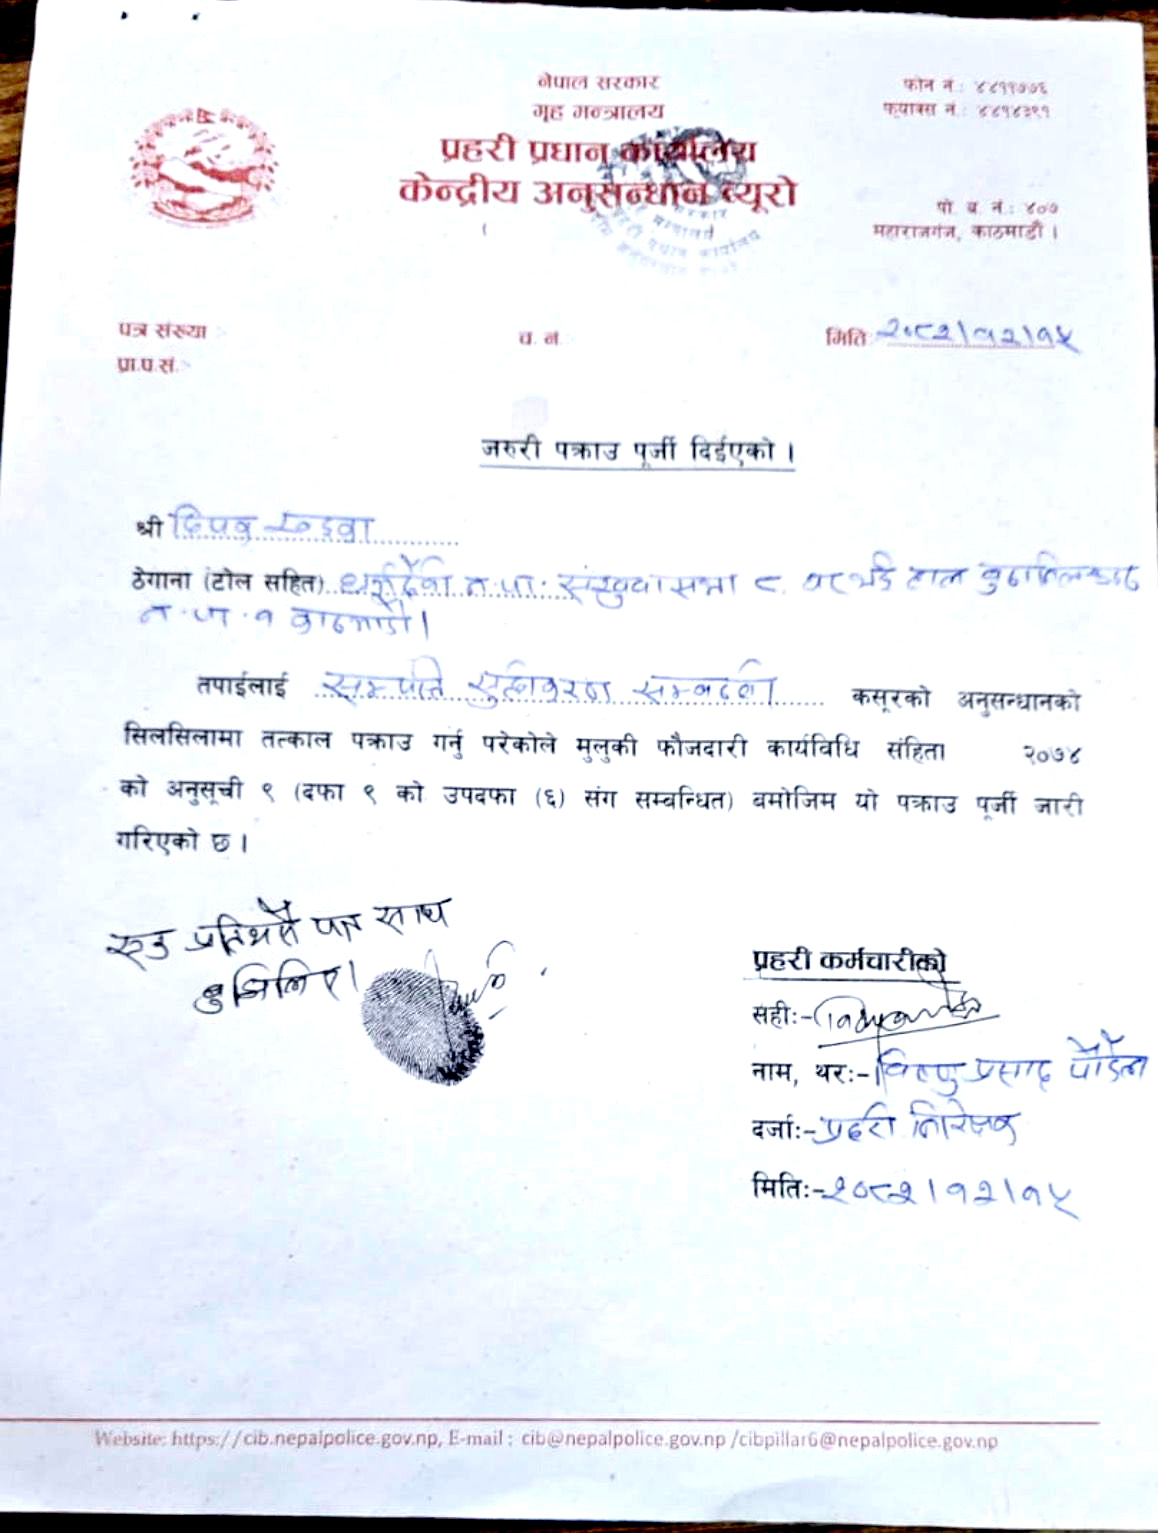 नेपाल सरकार
गृह मन्त्रालय
प्रहरी प्रधान कार्यालय
केन्द्रीय अनुसन्धान ब्यूरो
फोन नं.: ४४११७७६
फ्याक्स नं.: ४४१४३९१
पो. ब. नं.: ४०७
महाराजगंज, काठमाडौं ।
पत्र संख्या :-
प्रा.प.सं.:-
च. नं.:
मिति: २०८२।१२।१५
जरुरी पक्राउ पूर्जी दिईएको ।
श्री दिपक खड्का
ठेगाना (टोल सहित) धर्मदेवी न.पा. संखुवासभा ८ हाल बुढानिलकण्ठ
न.पा. १ काठमाडौं।
तपाईलाई सम्पत्ति शुद्धिकरण सम्बन्धी कसूरको अनुसन्धानको
सिलसिलामा तत्काल पक्राउ गर्नु परेकोले मुलुकी फौजदारी कार्यविधि संहिता २०७४
को अनुसूची ९ (दफा ९ को उपदफा (६) संग सम्बन्धित) बमोजिम यो पक्राउ पूर्जी जारी
गरिएको छ ।
एउ प्रति पत्र साथ
बुझिलिए।
प्रहरी कर्मचारीको
सही:-
नाम, थर:- विष्णु प्रसाद पौडेल
दर्जा:- प्रहरी निरीक्षक
मिति:- २०८२।१२।१५
Website: https://cib.nepalpolice.gov.np, E-mail : cib@nepalpolice.gov.np /cibpillar6@nepalpolice.gov.np